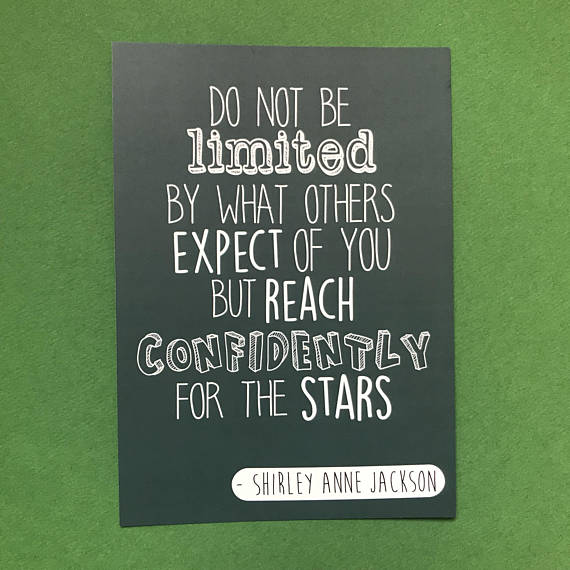 DO NOT BE
limited
BY WHAT OTHERS
EXPECT OF YOU
BUT REACH
CONFIDENTLY
FOR THE STARS
- SHIRLEY ANNE JACKSON